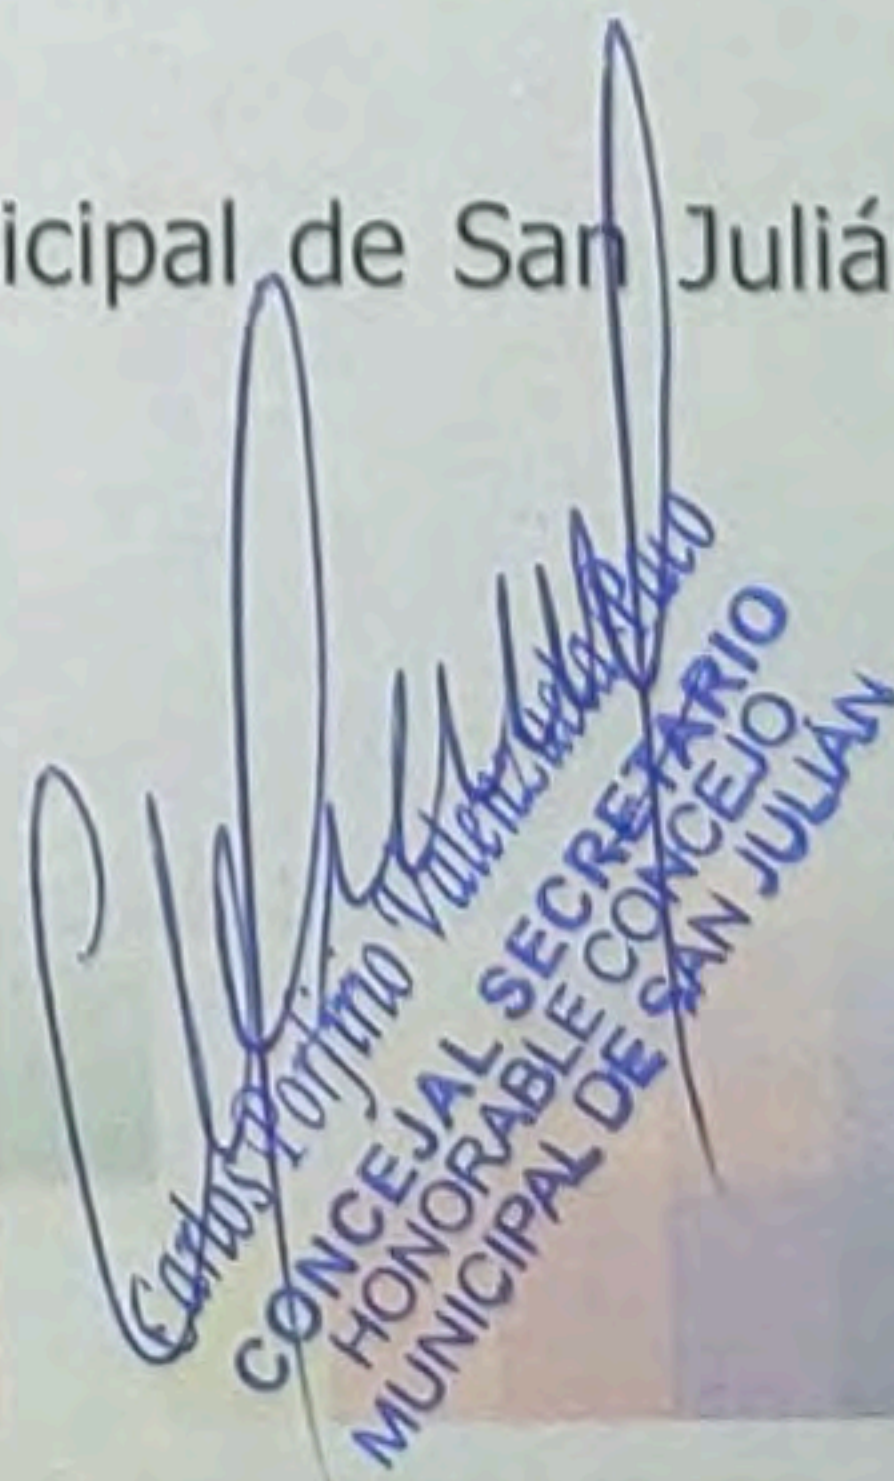 icipal de San Juliá
Carlos Porfirio Valenzuela
CONCEJAL SECRETARIO
HONORABLE CONCEJO
MUNICIPAL DE SAN JULIÁN